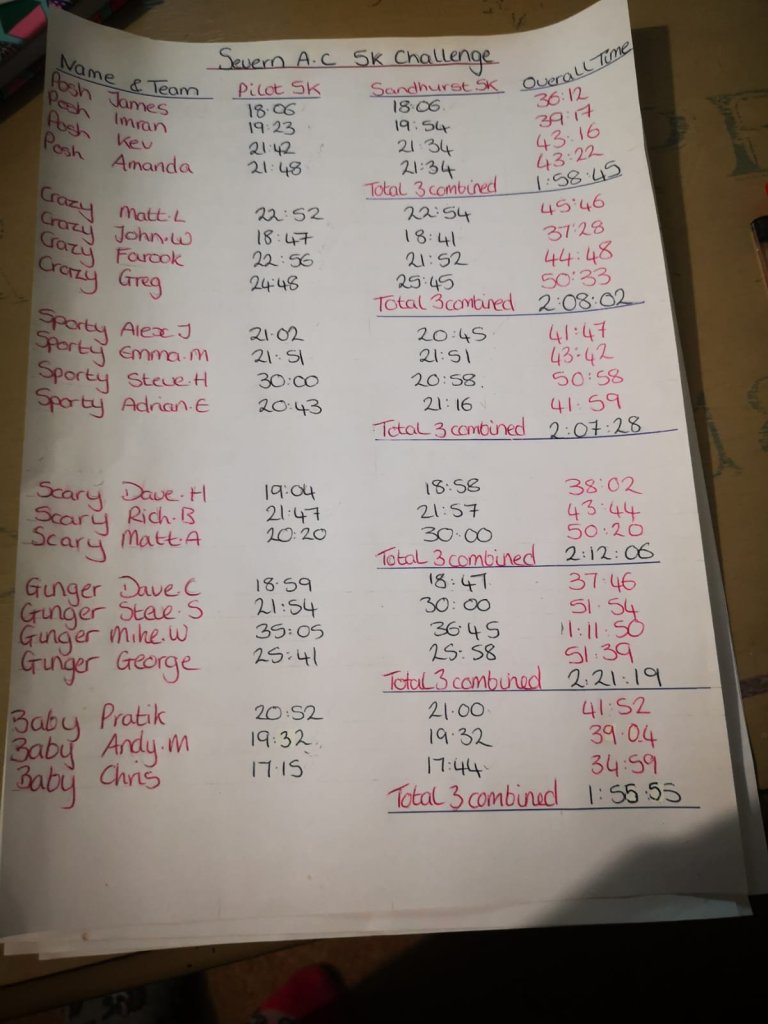 Severn A.C 5K Challenge
Name & Team Pilot 5K Sandhurst 5K Overall Time
Posh James 18:06 18:06 36:12
Posh Imran 19:23 19:54 39:17
Posh Kev 21:42 21:34 43:16
Posh Amanda 21:48 21:34 43:22
Total 3 combined 1:58:45
Crazy Matt.L 22:52 22:54 45:46
Crazy John.W 18:47 18:41 37:28
Crazy Farook 22:56 21:52 44:48
Crazy Greg 24:48 25:45 50:33
Total 3 combined 2:08:02
Sporty Alex J 21:02 20:45 41:47
Sporty Emma.M 21:51 21:51 43:42
Sporty Steve.H 30:00 20:58. 50:58
Sporty Adrian.E 20:43 21:16 41:59
Total 3 combined 2:07:28
Scary Dave.H 19:04 18:58 38:02
Scary Rich.B 21:47 21:57 43:44
Scary Matt.A 20:20 30:00 50:20
Total 3 combined 2:12:06
Ginger Dave C 18:59 18:47 37:46
Ginger Steve.S 21:54 30:00 51:54
Ginger Mike.W 35:05 36:45 1:11:50
Ginger George 25:41 25:58 51:39
Total 3 combined 2:21:19
Baby Pratik 20:52 21:00 41:52
Baby Andy.M 19:32 19:32 39:04
Baby Chris 17:15 17:44 34:59
Total 3 combined 1:55:55